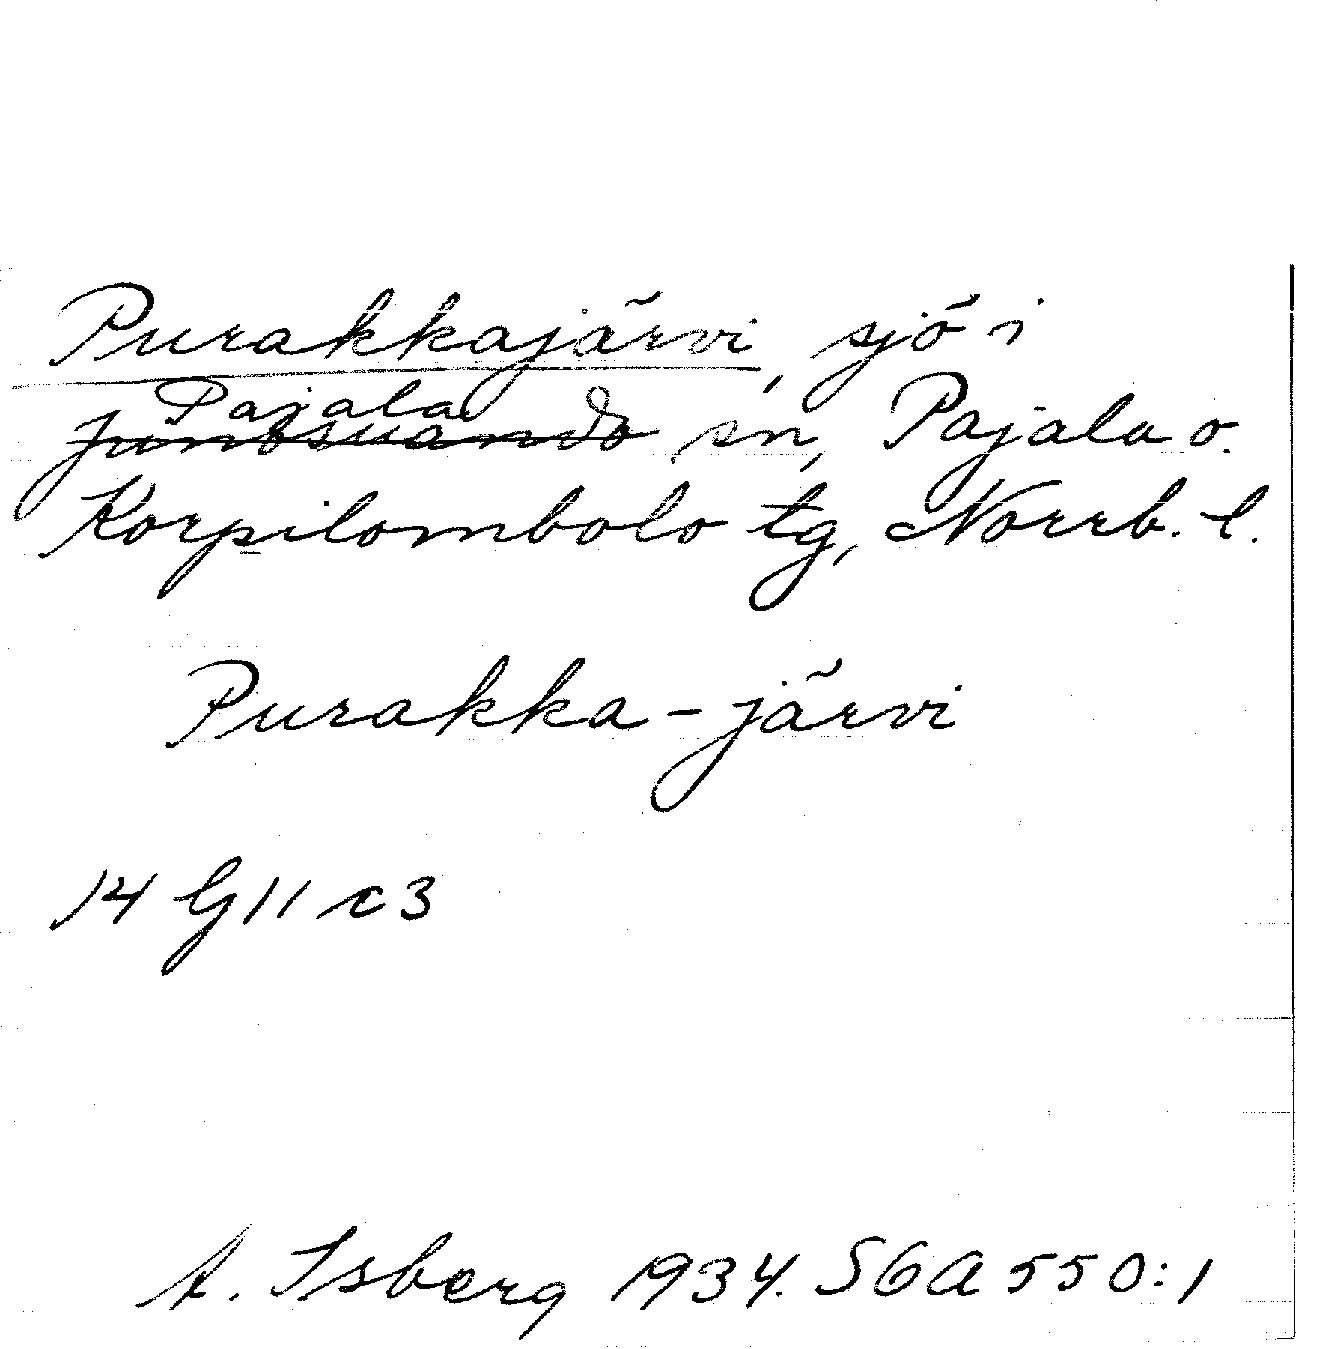 Purakkajärvi, sjö i
Pajala
Junosuando sn, Pajala o.
Korpilombolo tg, Norrb. l.
Purakka-järvi
14 G 11 c 3
A. Isberg 1934. SGA 550:1